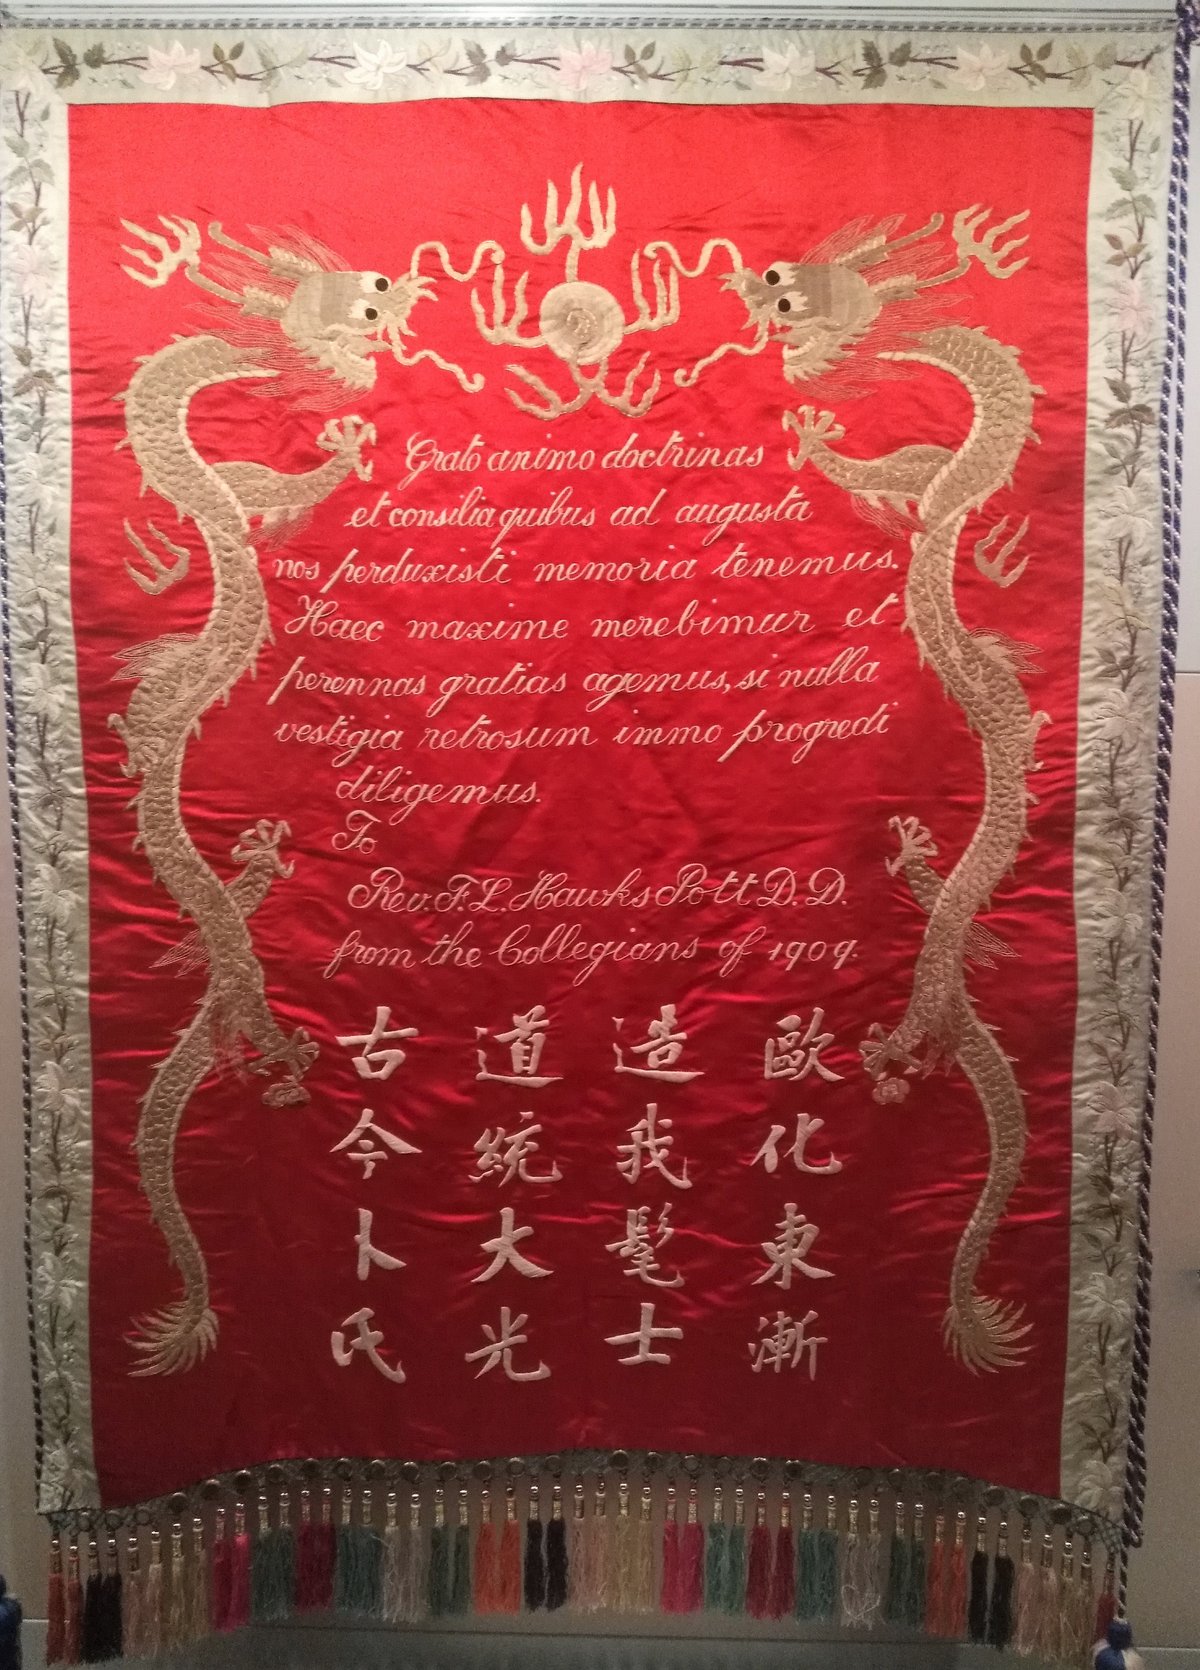 Grato animo doctrinas
et consilia quibus ad augusta
nos perduxisti memoria tenemus.
Haec maxime merebimur et
perennas gratias agemus, si nulla
vestigia retrosum immo progredi
diligemus.
To
Rev. F. L. Hawks Pott D. D.
from the Collegians of 1909.
歐化東漸
造我髦士
道統大光
古今卜氏